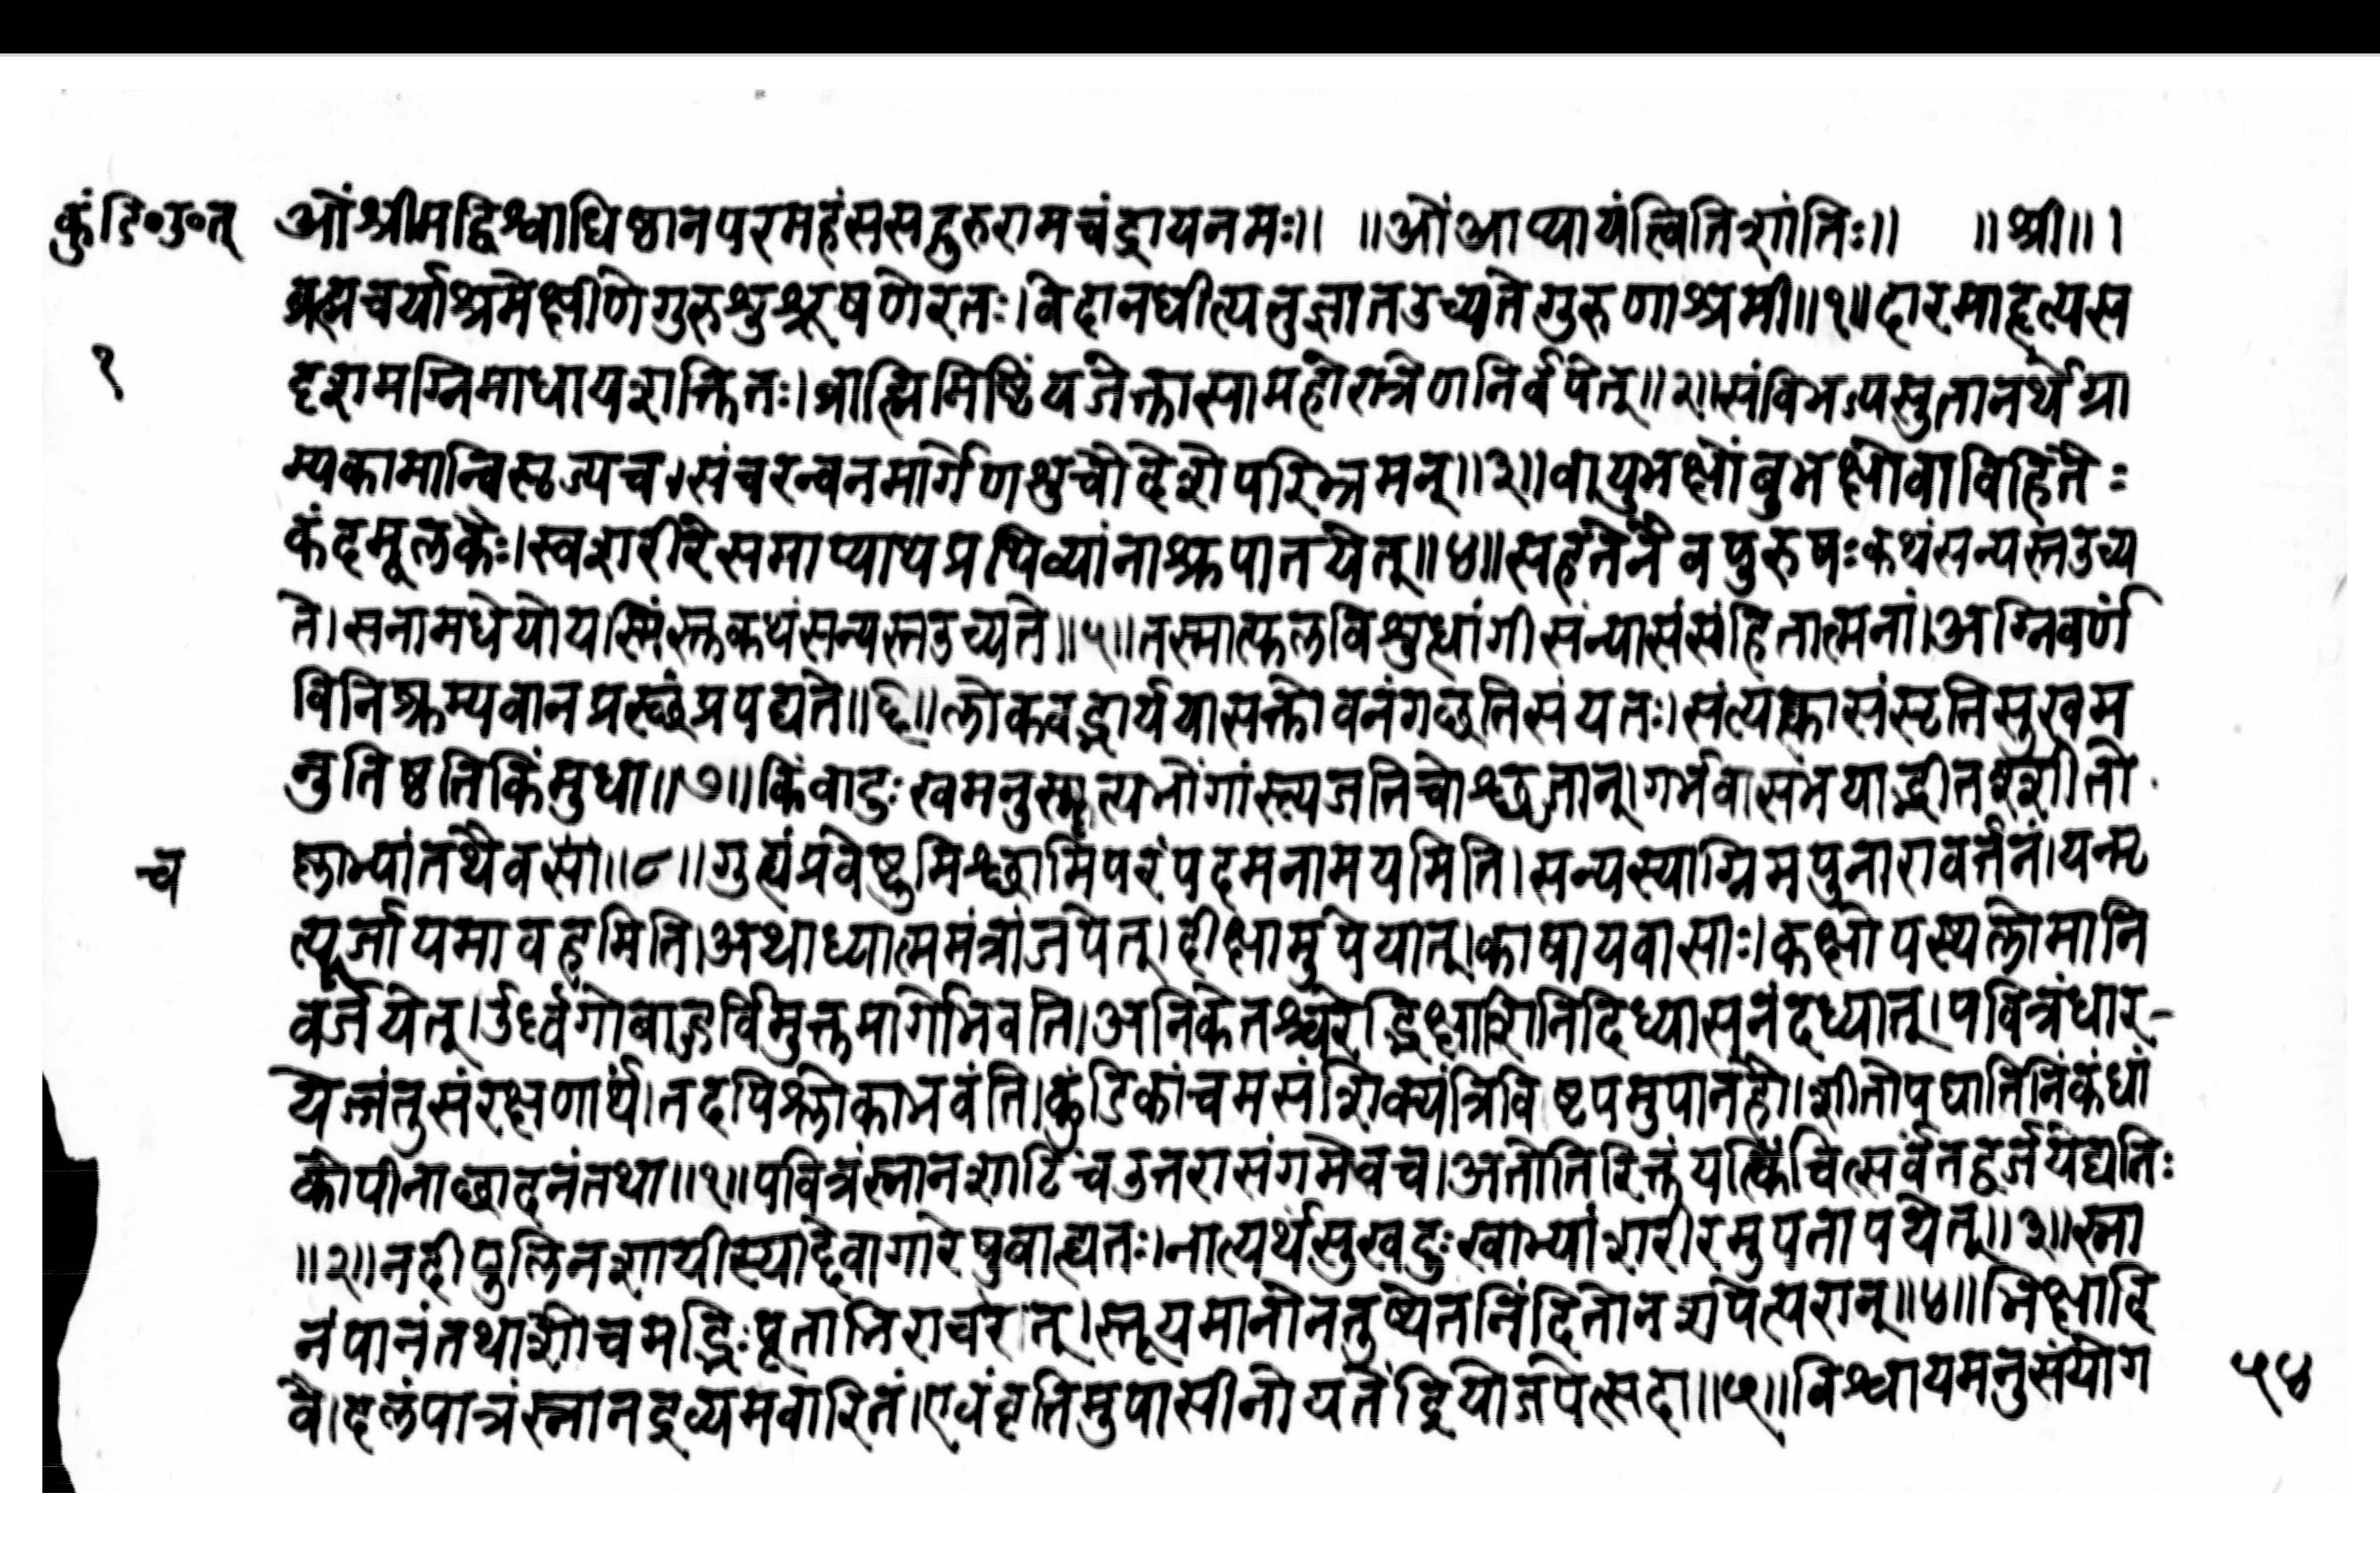 कुंडि०उ०त् ओंश्रीमद्विश्वाधिष्ठानपरमहंससद्गुरुरामचंद्रायनमः॥ ॥ओंआप्यायंत्वितिशांतिः॥ ॥श्री॥।
ब्रह्मचर्याश्रमेक्षीणेगुरुशुश्रूषणेरतः।वेदानधीत्यनुज्ञातउच्यतेगुरुणाश्रमी॥१॥दारमाहृत्यस
१
दृशमग्निमाधायशक्तितः।ब्राह्मिमिष्टिंयजेत्तासामहोरात्रेणनिर्वपेत्॥२॥संविभज्यसुतानर्थेग्रा
म्यकामान्विसृज्यच।संचरन्वनमार्गेणशुचौदेशेपरिभ्रमन्॥३॥वायुभक्षोंबुभक्षोवाविहितैः
कंदमूलकैः।स्वशरीरेसमाप्यायप्रथिव्यांनाश्रुपातयेत्॥४॥सहतेनैवपुरुषःकथंसन्यस्तउच्य
ते।सनामधेयोयस्मिंस्तुकथंसन्यस्तउच्यते॥५॥तस्मात्फलविशुध्यांगीसंन्यासंसंहितात्मनां।अग्निवर्णं
विनिष्क्रम्यवानप्रस्छंप्रपद्यते॥६॥लोकवद्भार्ययासक्तोवनंगछतिसंयतः।संत्यक्त्कासंसृतिसुखम
नुतिष्ठतिकिंमुधा॥७॥किंवादुःखमनुस्मृत्यभोंगांस्त्यजतिचोश्छ्रतान्।गर्भवासभयाद्भीतश्शीतो
च ष्णाभ्यांतथैवसा॥८॥गुह्यंप्रवेष्टुमिश्छामिपरंपदमनामयमिति।सन्यस्याग्निमपुनारावर्तनं।यन्मृ
त्यूर्जायमावहमिति।अथाध्यात्ममंत्रांजपेत्।दीक्षामुपेयात्।काषायवासाः।कक्षोपस्थलोमानि
वर्जयेत्।उर्ध्वगोबाहुर्विमुक्तमार्गोभवति।अनिकेतश्चरेद्भिक्षाशिनिदिध्यासनंदध्यात्।पवित्रंधार-
येज्जंतुसंरक्षणार्थं।तदपिश्लोकाभवंति।कुंडिकांचमसंशिक्यंत्रिविष्टपमुपानहौ।शीतोपघातिनिंकंथां
कोपीनाछादनंतथा॥१॥पवित्रंस्नानशाटिंचउतरासंगमेवच।अतोतिरिक्तंयत्किंचित्सर्वंतद्वर्जयेद्यतिः
॥२॥नदीपुलिनशायीस्याद्देवागारेषुवाह्यतः।नात्यर्थंसुखदुःखाभ्यांशरीरमुपतापयेत्॥३॥स्ना
नंपानंतथाशौचमद्भिःपूताभिराचरेत्।स्तूयमानोनतुष्येतनिंदितोनशपेत्परान्॥४॥भिक्षादि
वै।दलंपात्रंस्नानद्रव्यमवारितं।एवंवृत्तिमुपासीनोयतेंद्रियोजपेत्सदा॥५॥विश्वायमनुसंयोग ५४